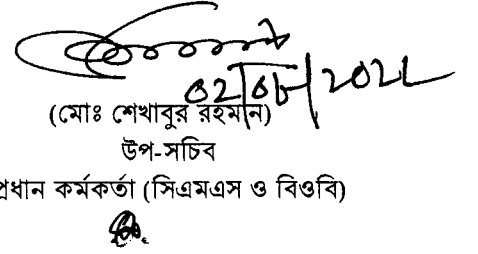 ০২/০৮/২০২২
(মোঃ শেখাবুর রহমান)
উপ-সচিব
প্রধান কর্মকর্তা (সিএমএস ও বিওবি)